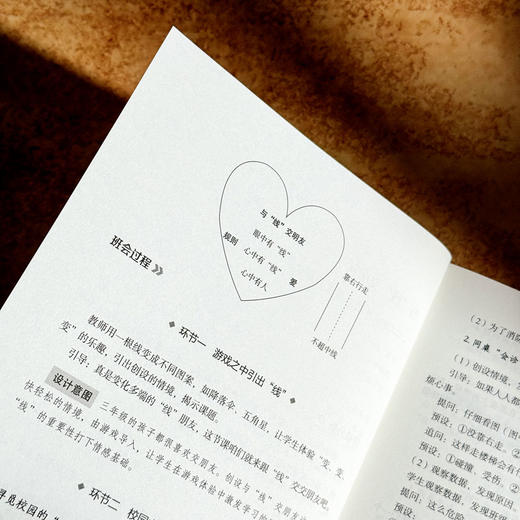 与“线”交朋友
眼中有“线”
规则 心中有“线” 爱
心中有人
靠右行走
不超中线
班会过程
环节一 游戏之中引出“线”
教师用一根线变成不同图案，如降落伞、五角星，让学生体验“变、变、
变”的乐趣，引出创设的情境，揭示课题。
引导：真是变化多端的“线”朋友，这节课咱们就来跟“线”交交朋友吧。
设计意图 三年级的孩子都很喜欢交朋友，创设与“线”交朋友
快轻松的情境，由游戏导入，让学生在游戏体验中激发学习的
“线”的重要性打下情感基础。
环节二 校园
寻觅校园的“
（2）为了消除
2. 同桌“会诊
（1）创设情境，
引导：如果人人都
烦心事。
提问：仔细看图（图
预设：①没靠右走。②
追问：这样走楼梯会有什
预设：①碰撞、受伤。②
（2）观察数据，发现原因。
学生观察数据，发现班级
提问：这么危险
预设